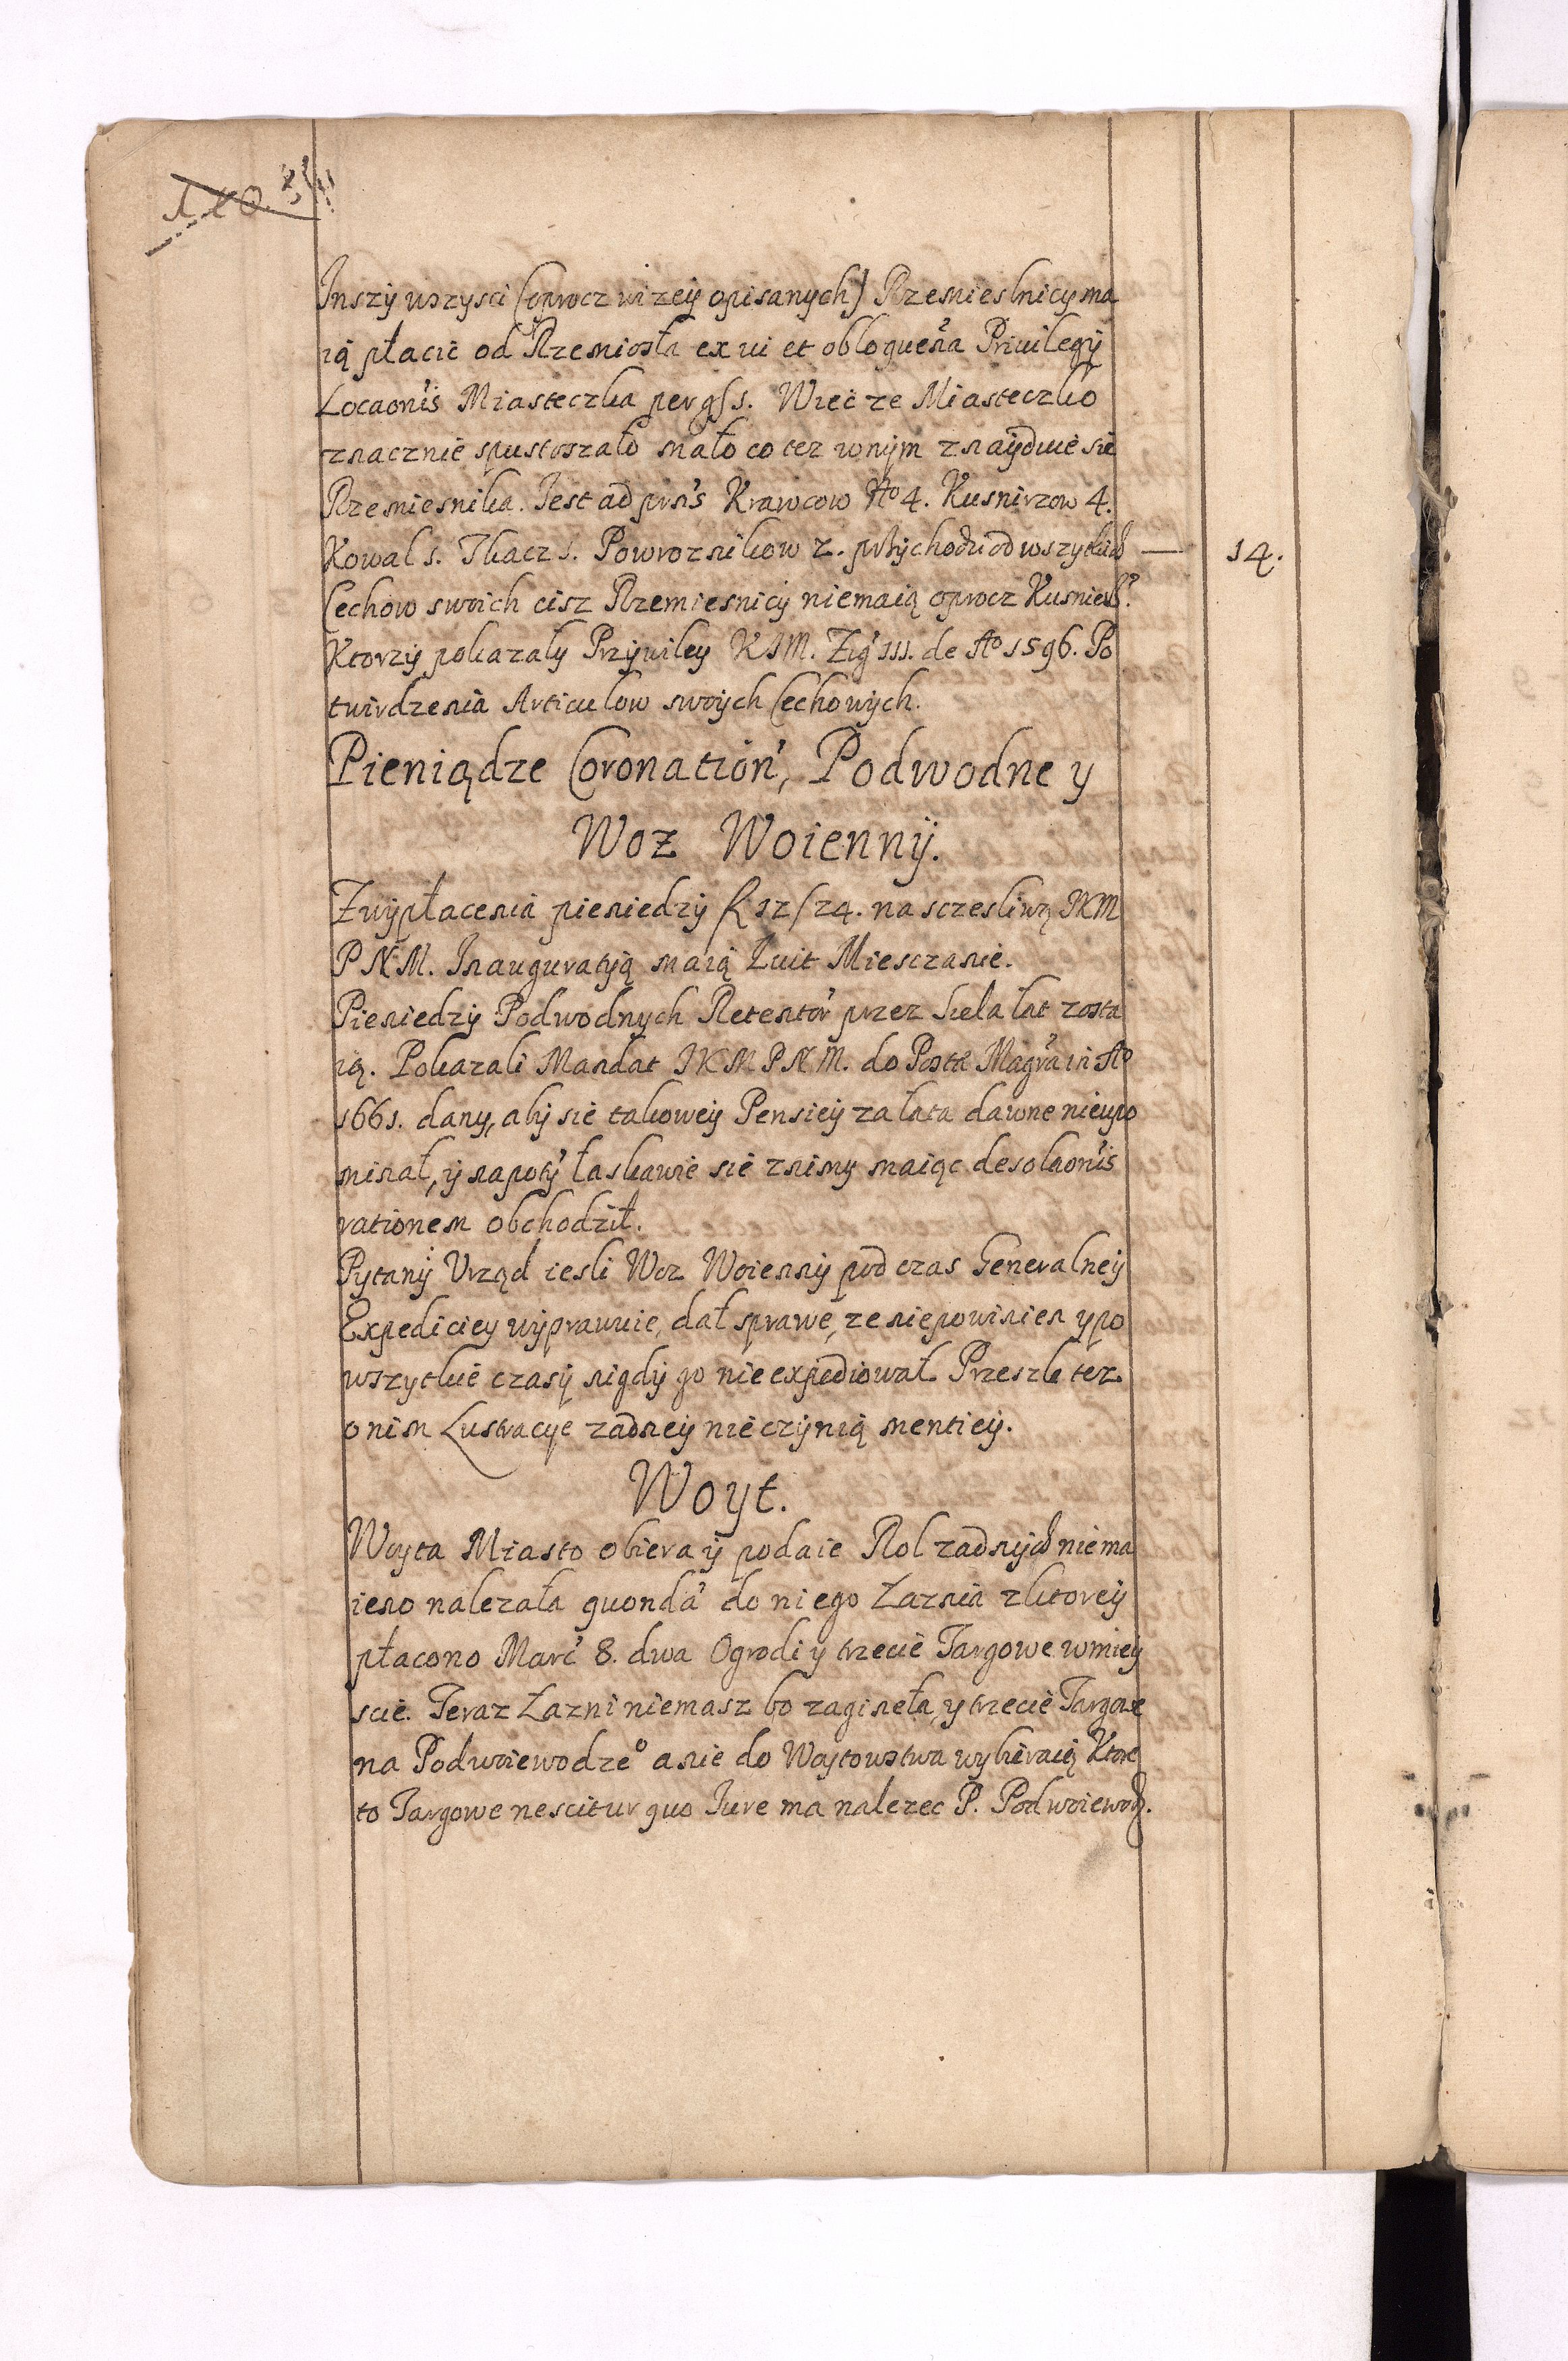 Inszy wszysci (oprocz wizey opisanych) Rzemieslnicy ma
ią płacic od Rzemiosła ex vi et obloquen'a Privilegÿ
Locaonis Miasteczka per g/1. Więc ze Miasteczko
znacznie spustoszało mało co tez w nÿm znayduie się
Rzemiesnika. Iest ad prns Krawcow No 4. Kusnirzow 4.
Kowal 1. Tkacz 1. Powroznikow 2. przychodu od wszytkich — 14.
Cechow swoich cisz Rzemiesnicy niemaią oprocz Kusnierz.
Ktorzy pokazaly Przywiley KJM. Zig' III. de Ao 1596. Po
twirdzenia Articulow swoych Cechowych.
Pieniądze Coronation', Podwodne y
Woz Woiennÿ.
Z wÿpłacenia pieniedzy f 12/24. na szczesliwą JKM
P N M. Inauguratyą maią kwit Miesczanie.
Pieniedzy Podwodnych Retentor' przez kiela lat zosta
ią. Pokazali Mandat JKMPNM. do Posta Magra in Ao
1661. dany, aby sie takowey Pensiey za łata dawne nieupo
minał, ÿ napoty' łaskawie się z nimy maiąc desolaonis
rationem obchodził.
Pytanÿ Vrząd iesli Woz Woiennÿ pod czas Generalneÿ
Expediciey wyprawuie, dał sprawę, ze niepowinien y po
wszytkie czasÿ nigdÿ go nie expediował. Przeszłe tez
o nim Lustracye zadney nie czynią mentieÿ.
Woyt.
Woyta Miasto obiera ÿ podaie Rol zadnych niema
ieno nalezała quonda' do niego Łaznia z ktoreÿ
płacono Marc' 8. dwa Ogrodi y trzecie Targowe w miey
scie. Teraz Łazni niemasz bo zagineła, y trzecie Targowe
na Podwoiewodzeo a nie do Woytowstwa wybieraią Ktore
to Targowe nescitur quo Iure ma nalezec P. Podwoiewodz.